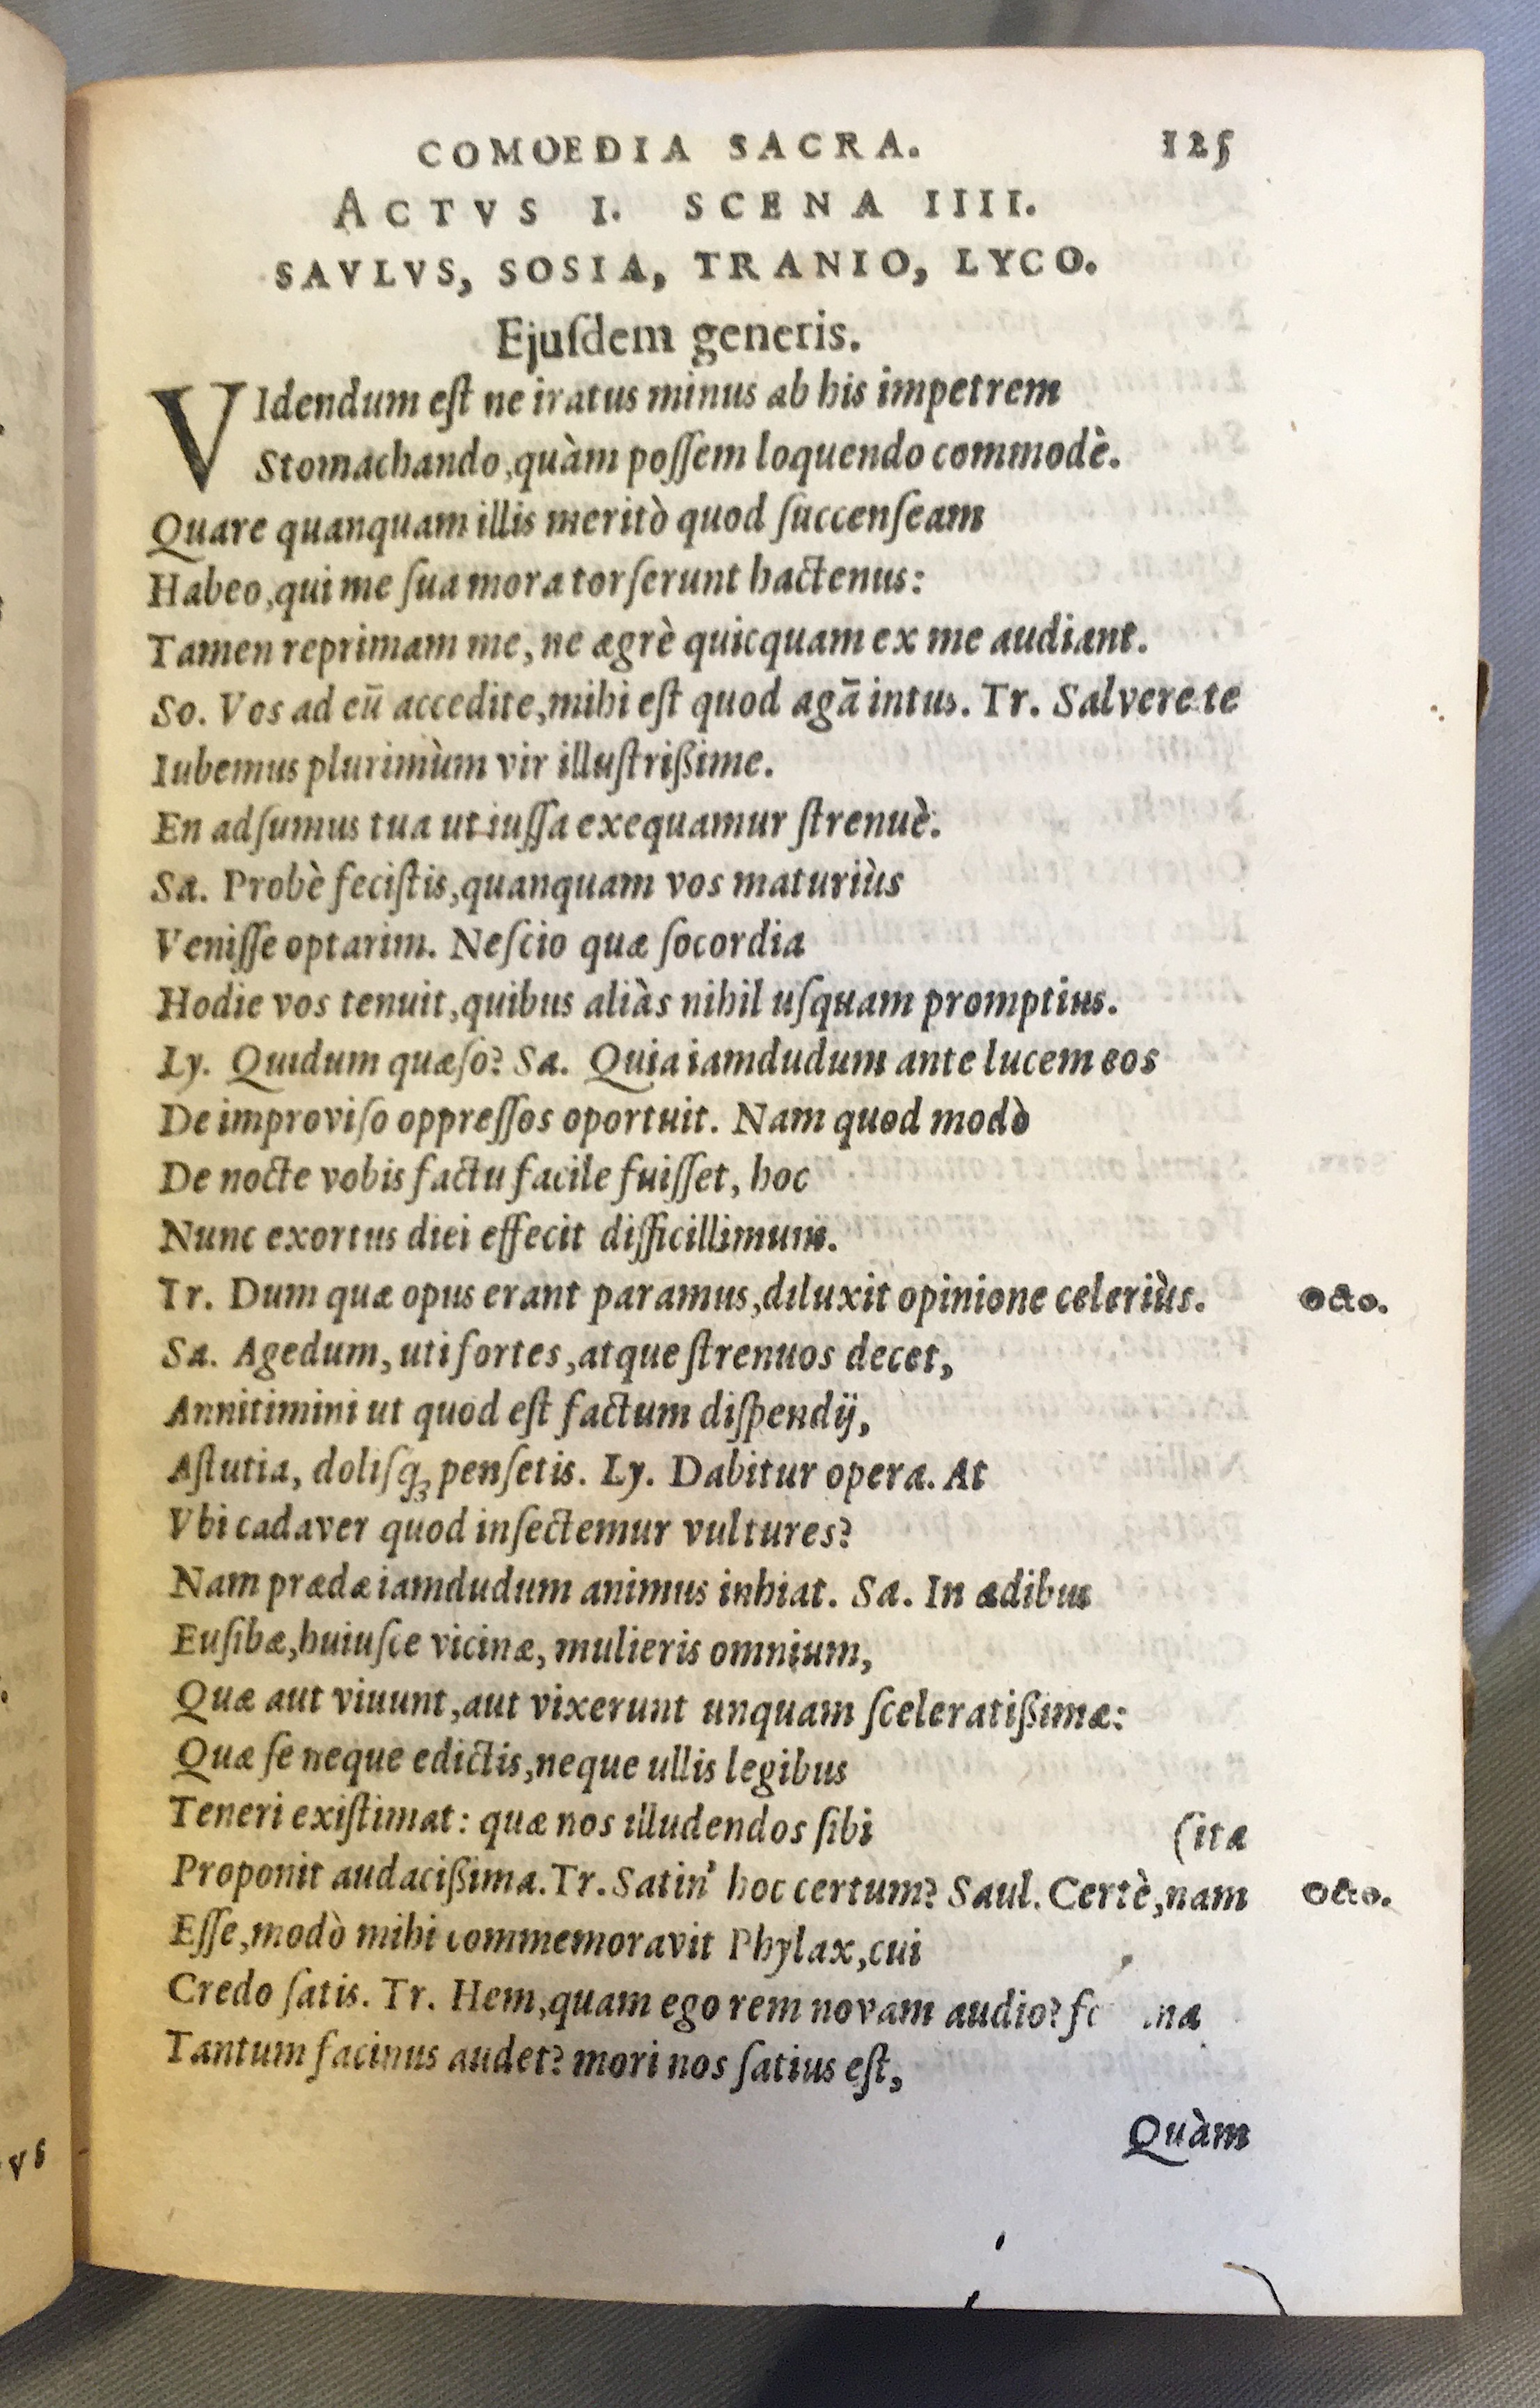 COMOEDIA SACRA. 125
ACTVS I. SCENA IIII.
SAVLVS, SOSIA, TRANIO, LYCO.
Ejuſdem generis.
VIdendum eſt ne iratus minus ab his impetrem
Stomachando, quàm poſſem loquendo commodè.
Quare quanquam illis meritò quod ſuccenſeam
Habeo, qui me ſua mora torſerunt hactenus:
Tamen reprimam me, ne ægrè quicquam ex me audiant.
So. Vos ad eū accedite, mihi eſt quod agā intus. Tr. Salvere te
Iubemus plurimùm vir illuſtrißime.
En adſumus tua ut iuſſa exequamur ſtrenuè.
Sa. Probè feciſtis, quanquam vos maturiùs
Veniſſe optarim. Neſcio quæ ſocordia
Hodie vos tenuit, quibus aliàs nihil uſquam promptius.
Ly. Quidum quæſo? Sa. Quia iamdudum ante lucem eos
De improviſo oppreſſos oportuit. Nam quod modò
De nocte vobis factu facile fuiſſet, hoc
Nunc exortus diei effecit difficillimum.
Tr. Dum quæ opus erant paramus, diluxit opinione celeriùs. Octo.
Sa. Agedum, uti fortes, atque ſtrenuos decet,
Annitimini ut quod eſt factum diſpendij,
Aſtutia, doliſq́ꝫ penſetis. Ly. Dabitur opera. At
Vbi cadaver quod inſectemur vultures?
Nam prædæ iamdudum animus inhiat. Sa. In ædibus
Euſibæ, huiuſce vicinæ, mulieris omnium,
Quæ aut viuunt, aut vixerunt unquam ſceleratißimæ:
Quæ ſe neque edictis, neque ullis legibus
Teneri exiſtimat: quæ nos illudendos ſibi (ita
Proponit audacißima. Tr. Satin' hoc certum? Saul. Certè, nam Octo.
Eſſe, modò mihi commemoravit Phylax, cui
Credo ſatis. Tr. Hem, quam ego rem novam audio?
Tantum facinus audet? mori nos ſatius eſt,
Quàm